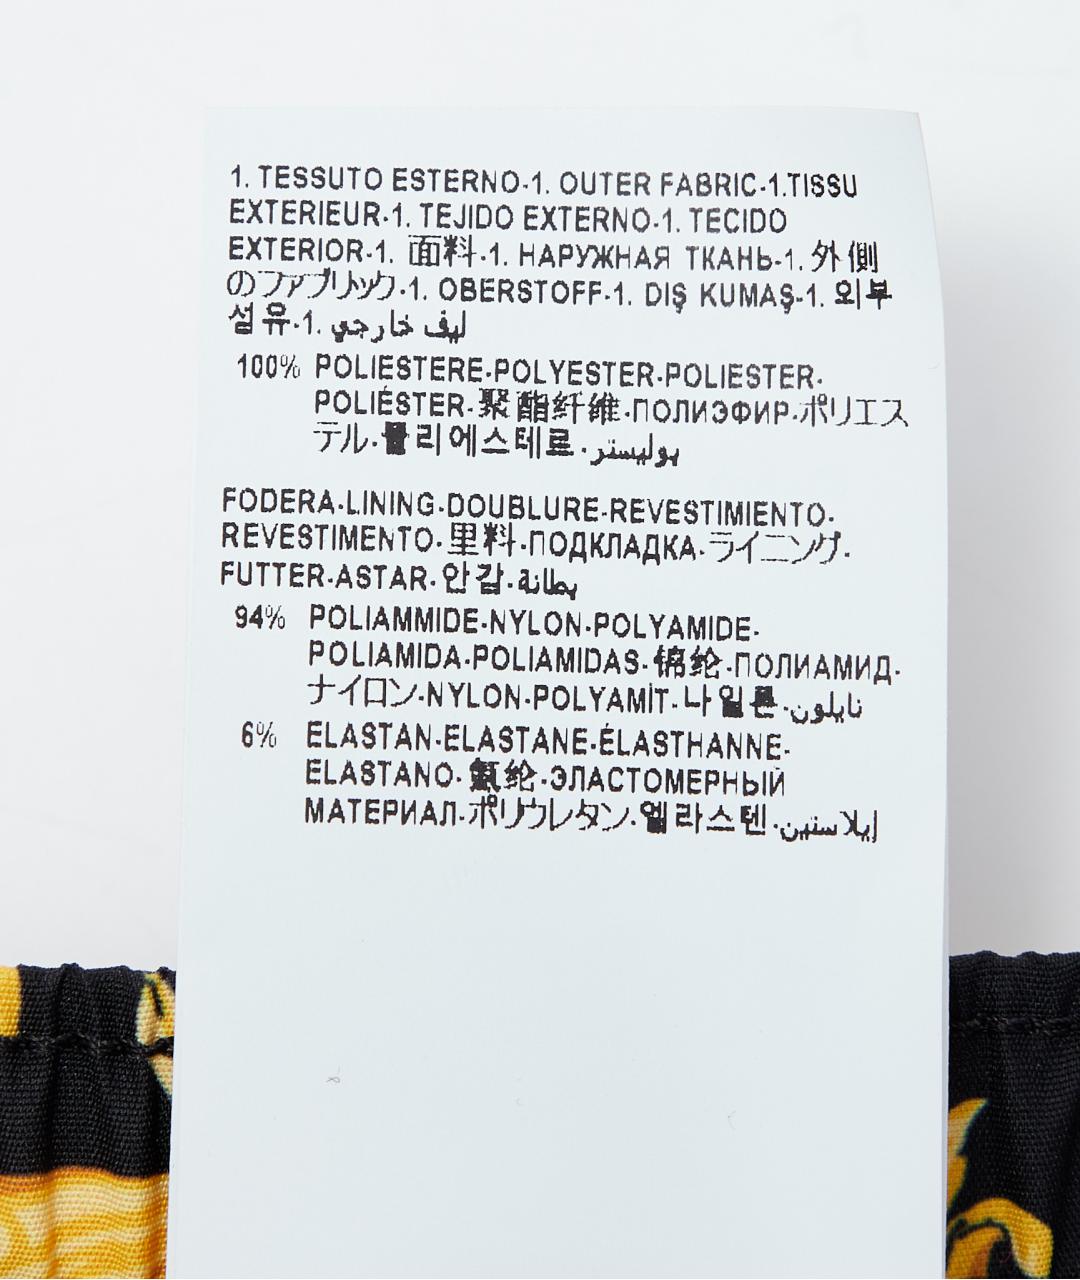 1. TESSUTO ESTERNO-1. OUTER FABRIC-1.TISSU
EXTERIEUR-1. TEJIDO EXTERNO-1. TECIDO
EXTERIOR-1. 面料-1. НАРУЖНАЯ ТКАНЬ-1. 外側
のファブリック-1. OBERSTOFF-1. DIŞ KUMAŞ-1. 외부
섬유-1. ليف خارجي
100% POLIESTERE-POLYESTER-POLIESTER-
POLIÉSTER-聚酯纤维-ПОЛИЭФИР-ポリエス
テル-폴리에스테르-بوليستر
FODERA-LINING-DOUBLURE-REVESTIMIENTO-
REVESTIMENTO-里料-ПОДКЛАДКА-ライニング-
FUTTER-ASTAR-안감-بطانة
94% POLIAMMIDE-NYLON-POLYAMIDE-
POLIAMIDA-POLIAMIDAS-锦纶-ПОЛИАМИД-
ナイロン-NYLON-POLYAMİT-나일론-نايلون
6% ELASTAN-ELASTANE-ÉLASTHANNE-
ELASTANO-氨纶-ЭЛАСТОМЕРНЫЙ
МАТЕРИАЛ-ポリウレタン-엘라스텐-إيلاستين